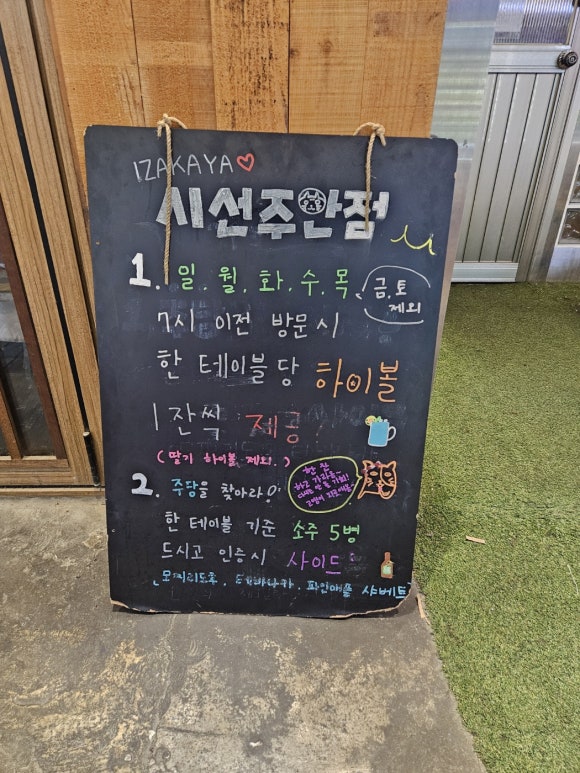 IZAKAYA
시선주안점
1. 일.월.화.수.목
금.토
제외
7시 이전 방문시
한 테이블당 하이볼
1잔씩 제공
(딸기 하이볼 제외.)
2. 주당을 찾아라!
한 잔
하고 가라옹~
한 테이블 기준 소주 5병
드시고 인증시 사이드!
파인애플 샤베트